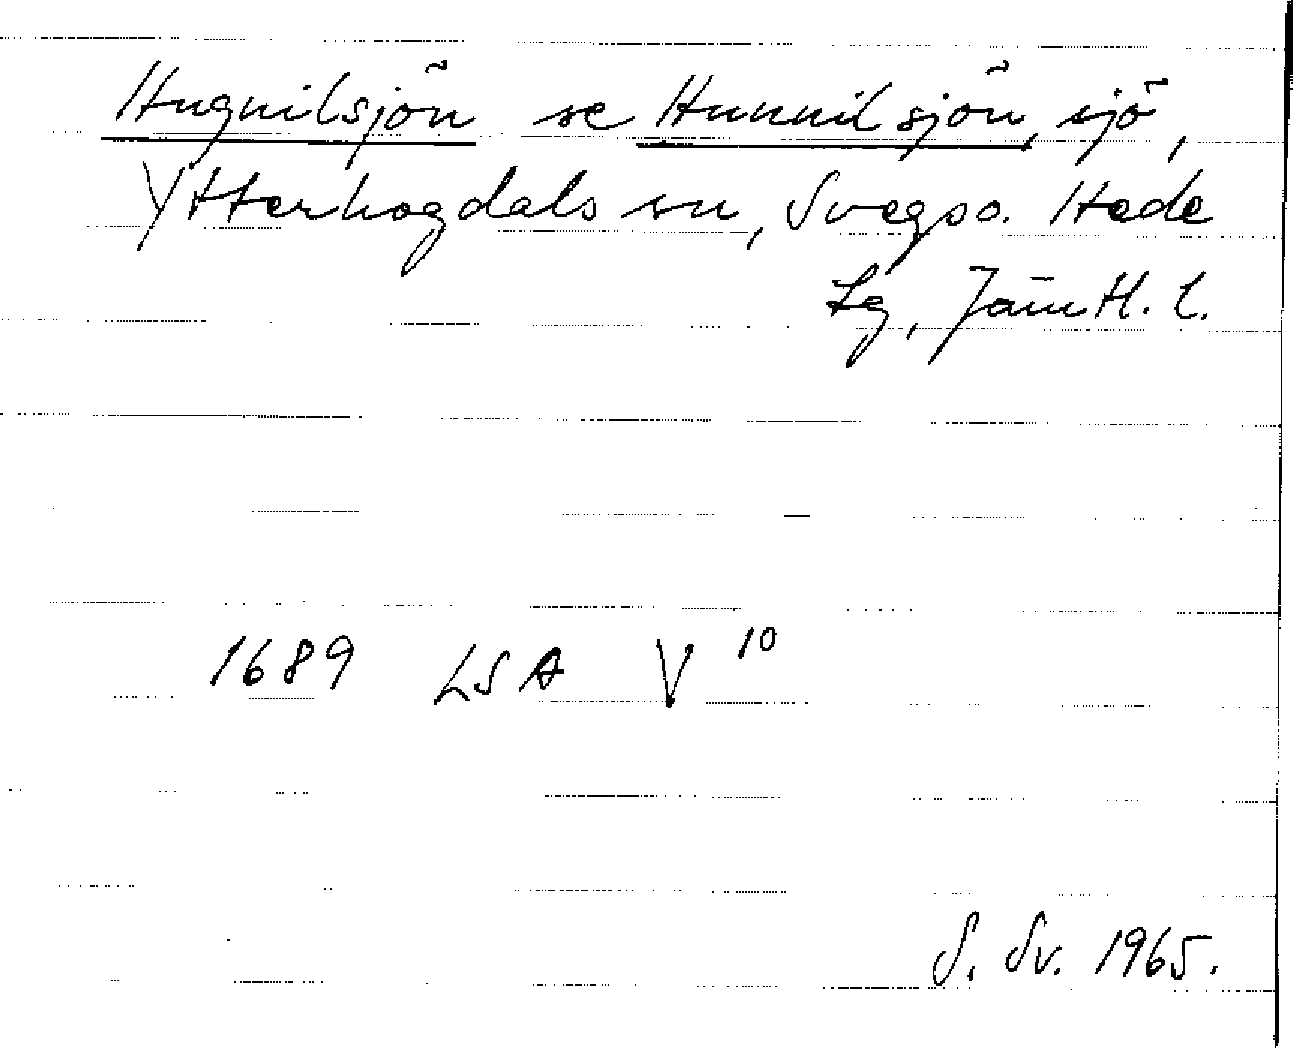 Hugnilsjön se Hunnilsjön, sjö,
Ytterhogdals sn, Svegs o. Hede
Lg, Jämtl. l.
1689 LSA V 10
S. Sv. 1965.